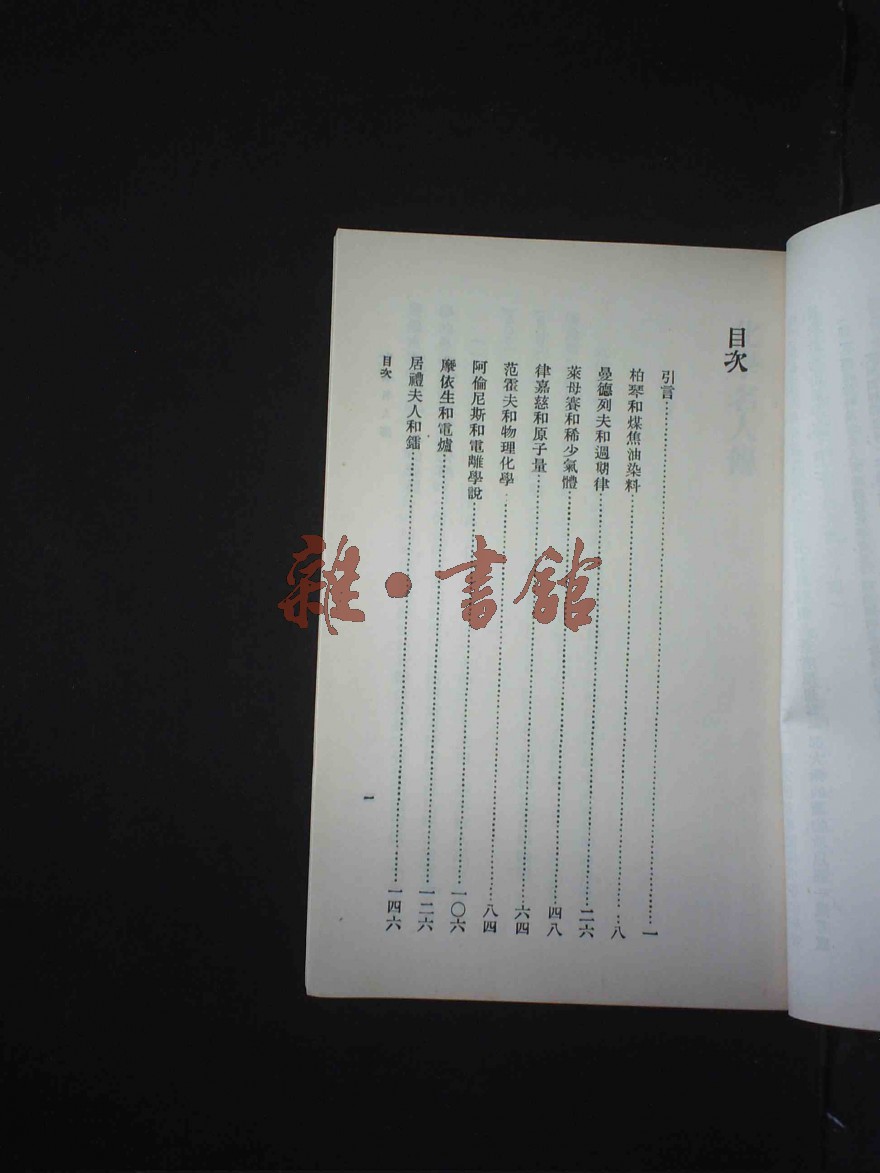 目次
引言……一
柏琴和煤焦油染料……八
曼德列夫和週期律……二六
萊母賽和稀少氣體……四八
律嘉慈和原子量……六四
范霍夫和物理化學……八四
阿倫尼斯和電離學說……一〇六
摩依生和電爐……一二六
居禮夫人和鐳……一四六
目次
一
雜·書館